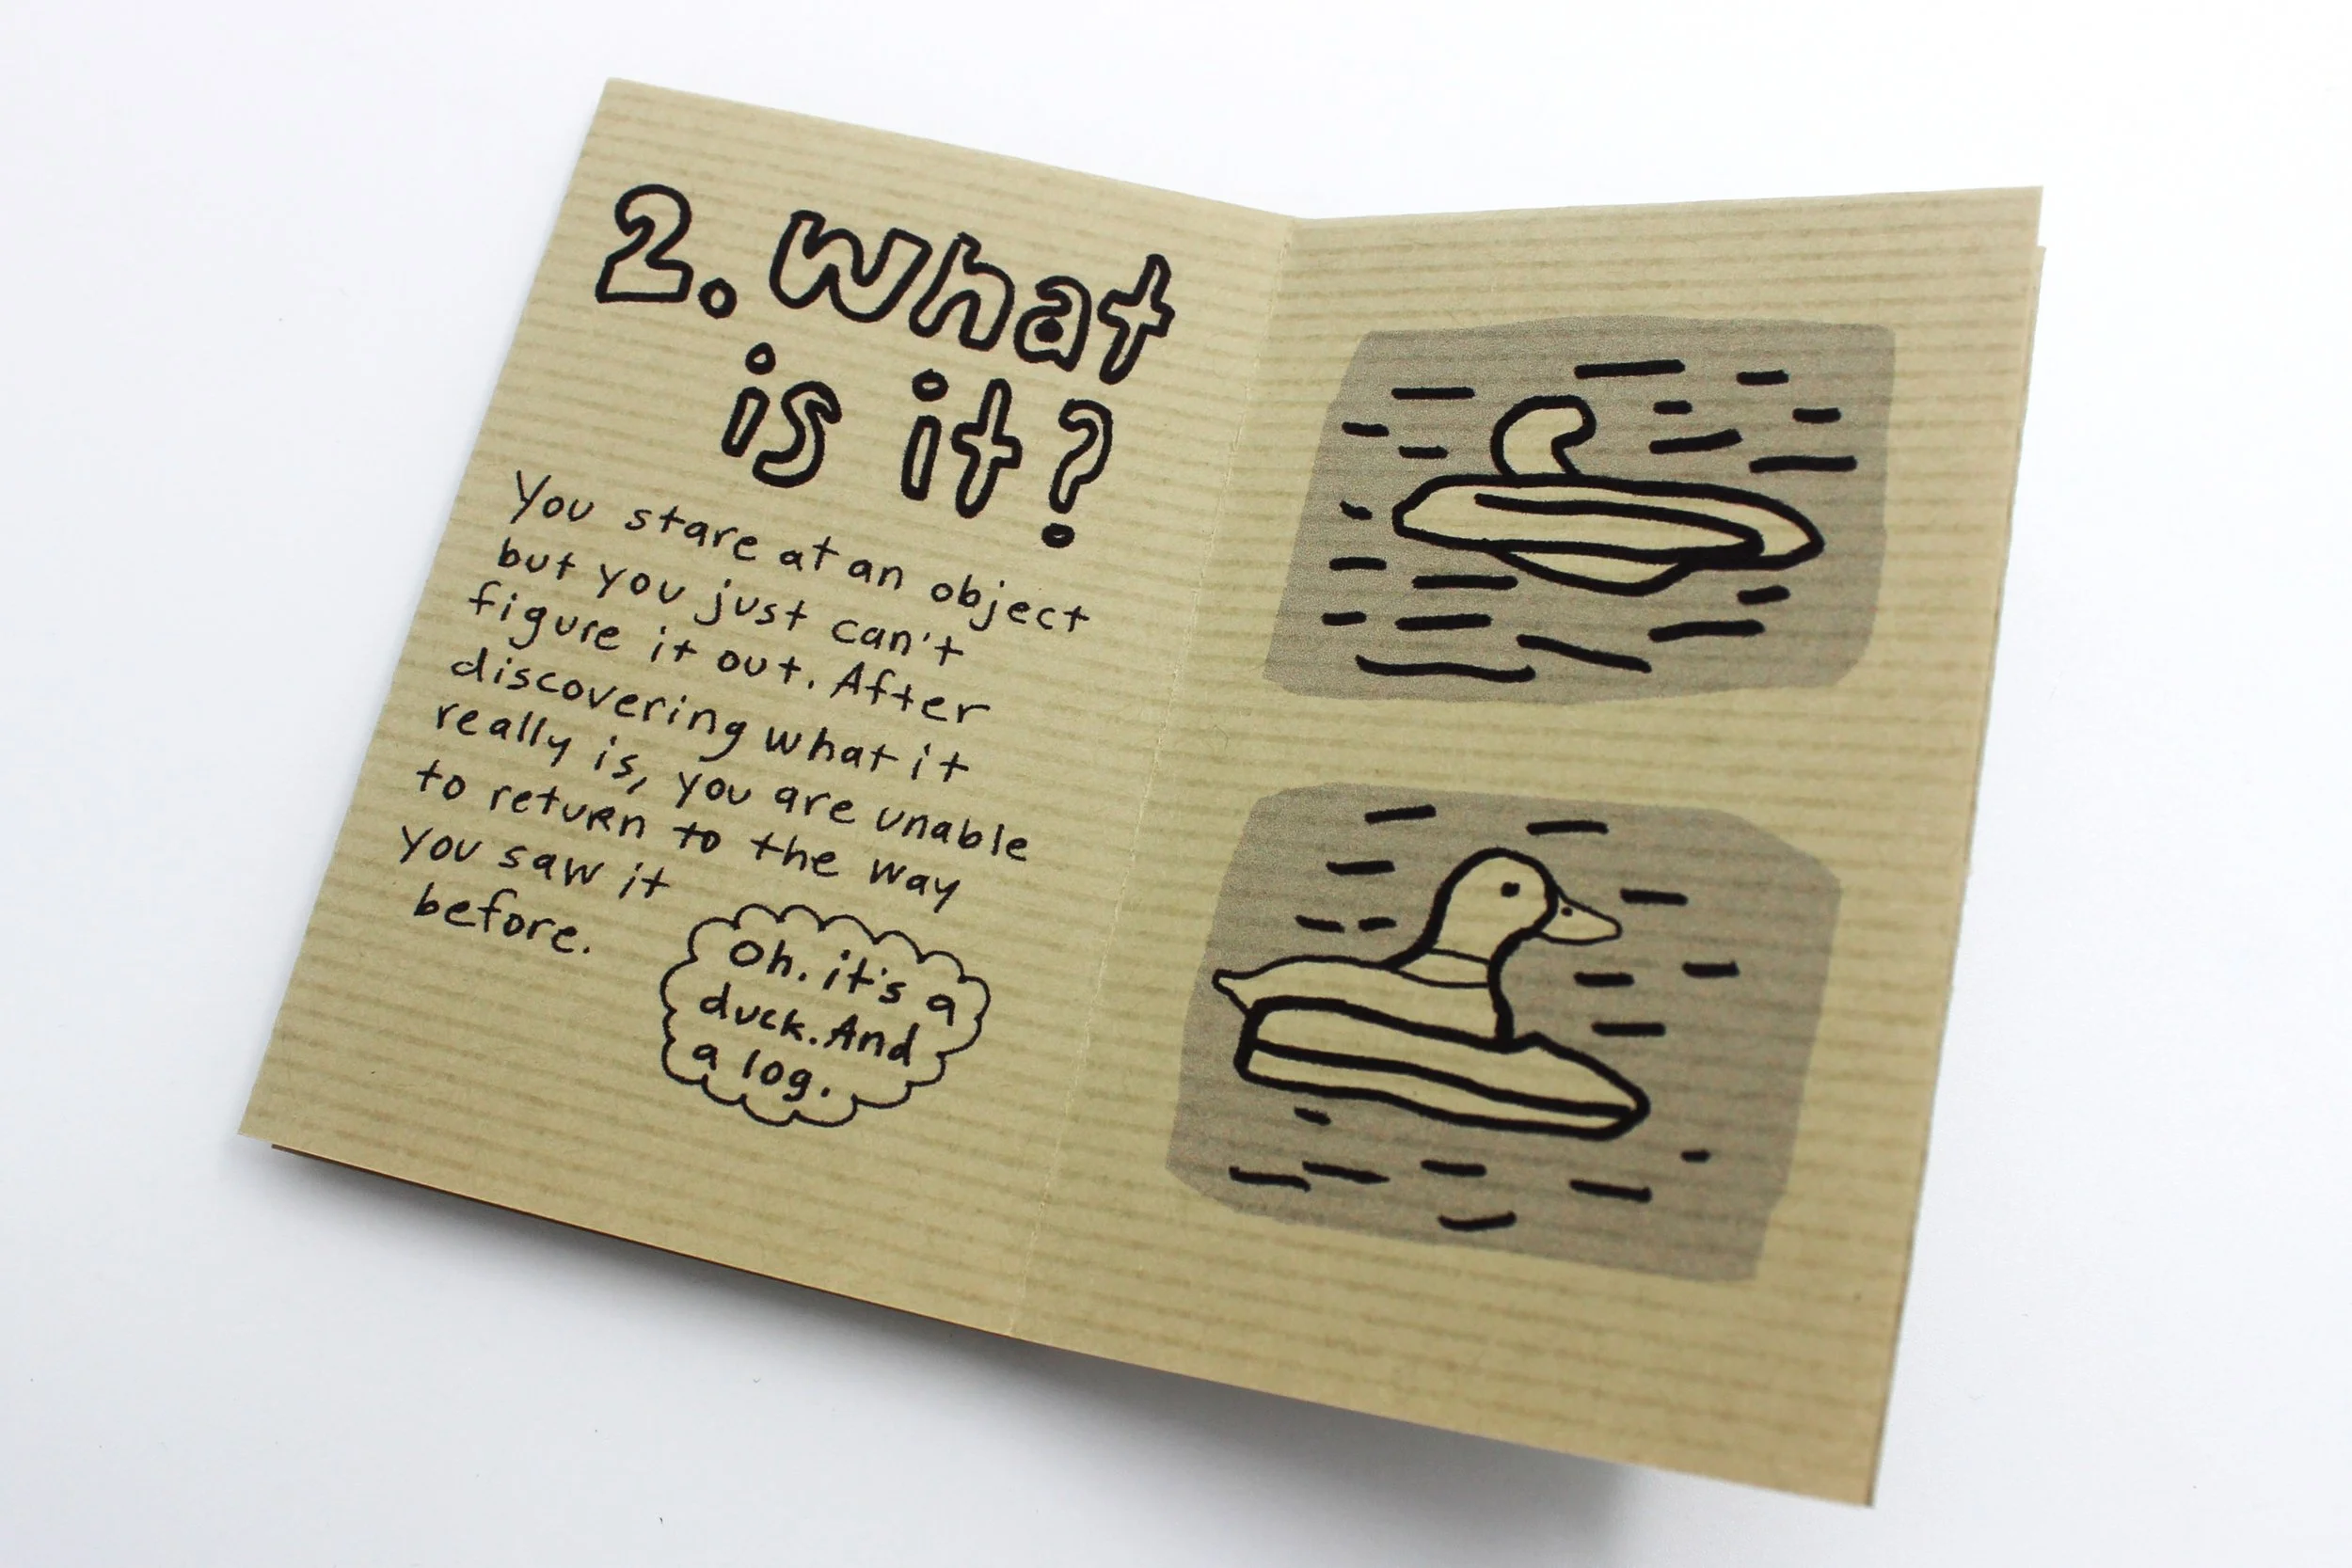 2. What
is it?
You stare at an object
but you just can't
figure it out. After
discovering what it
really is, you are unable
to return to the way
you saw it
before.
Oh. it's a
duck. And
a log.